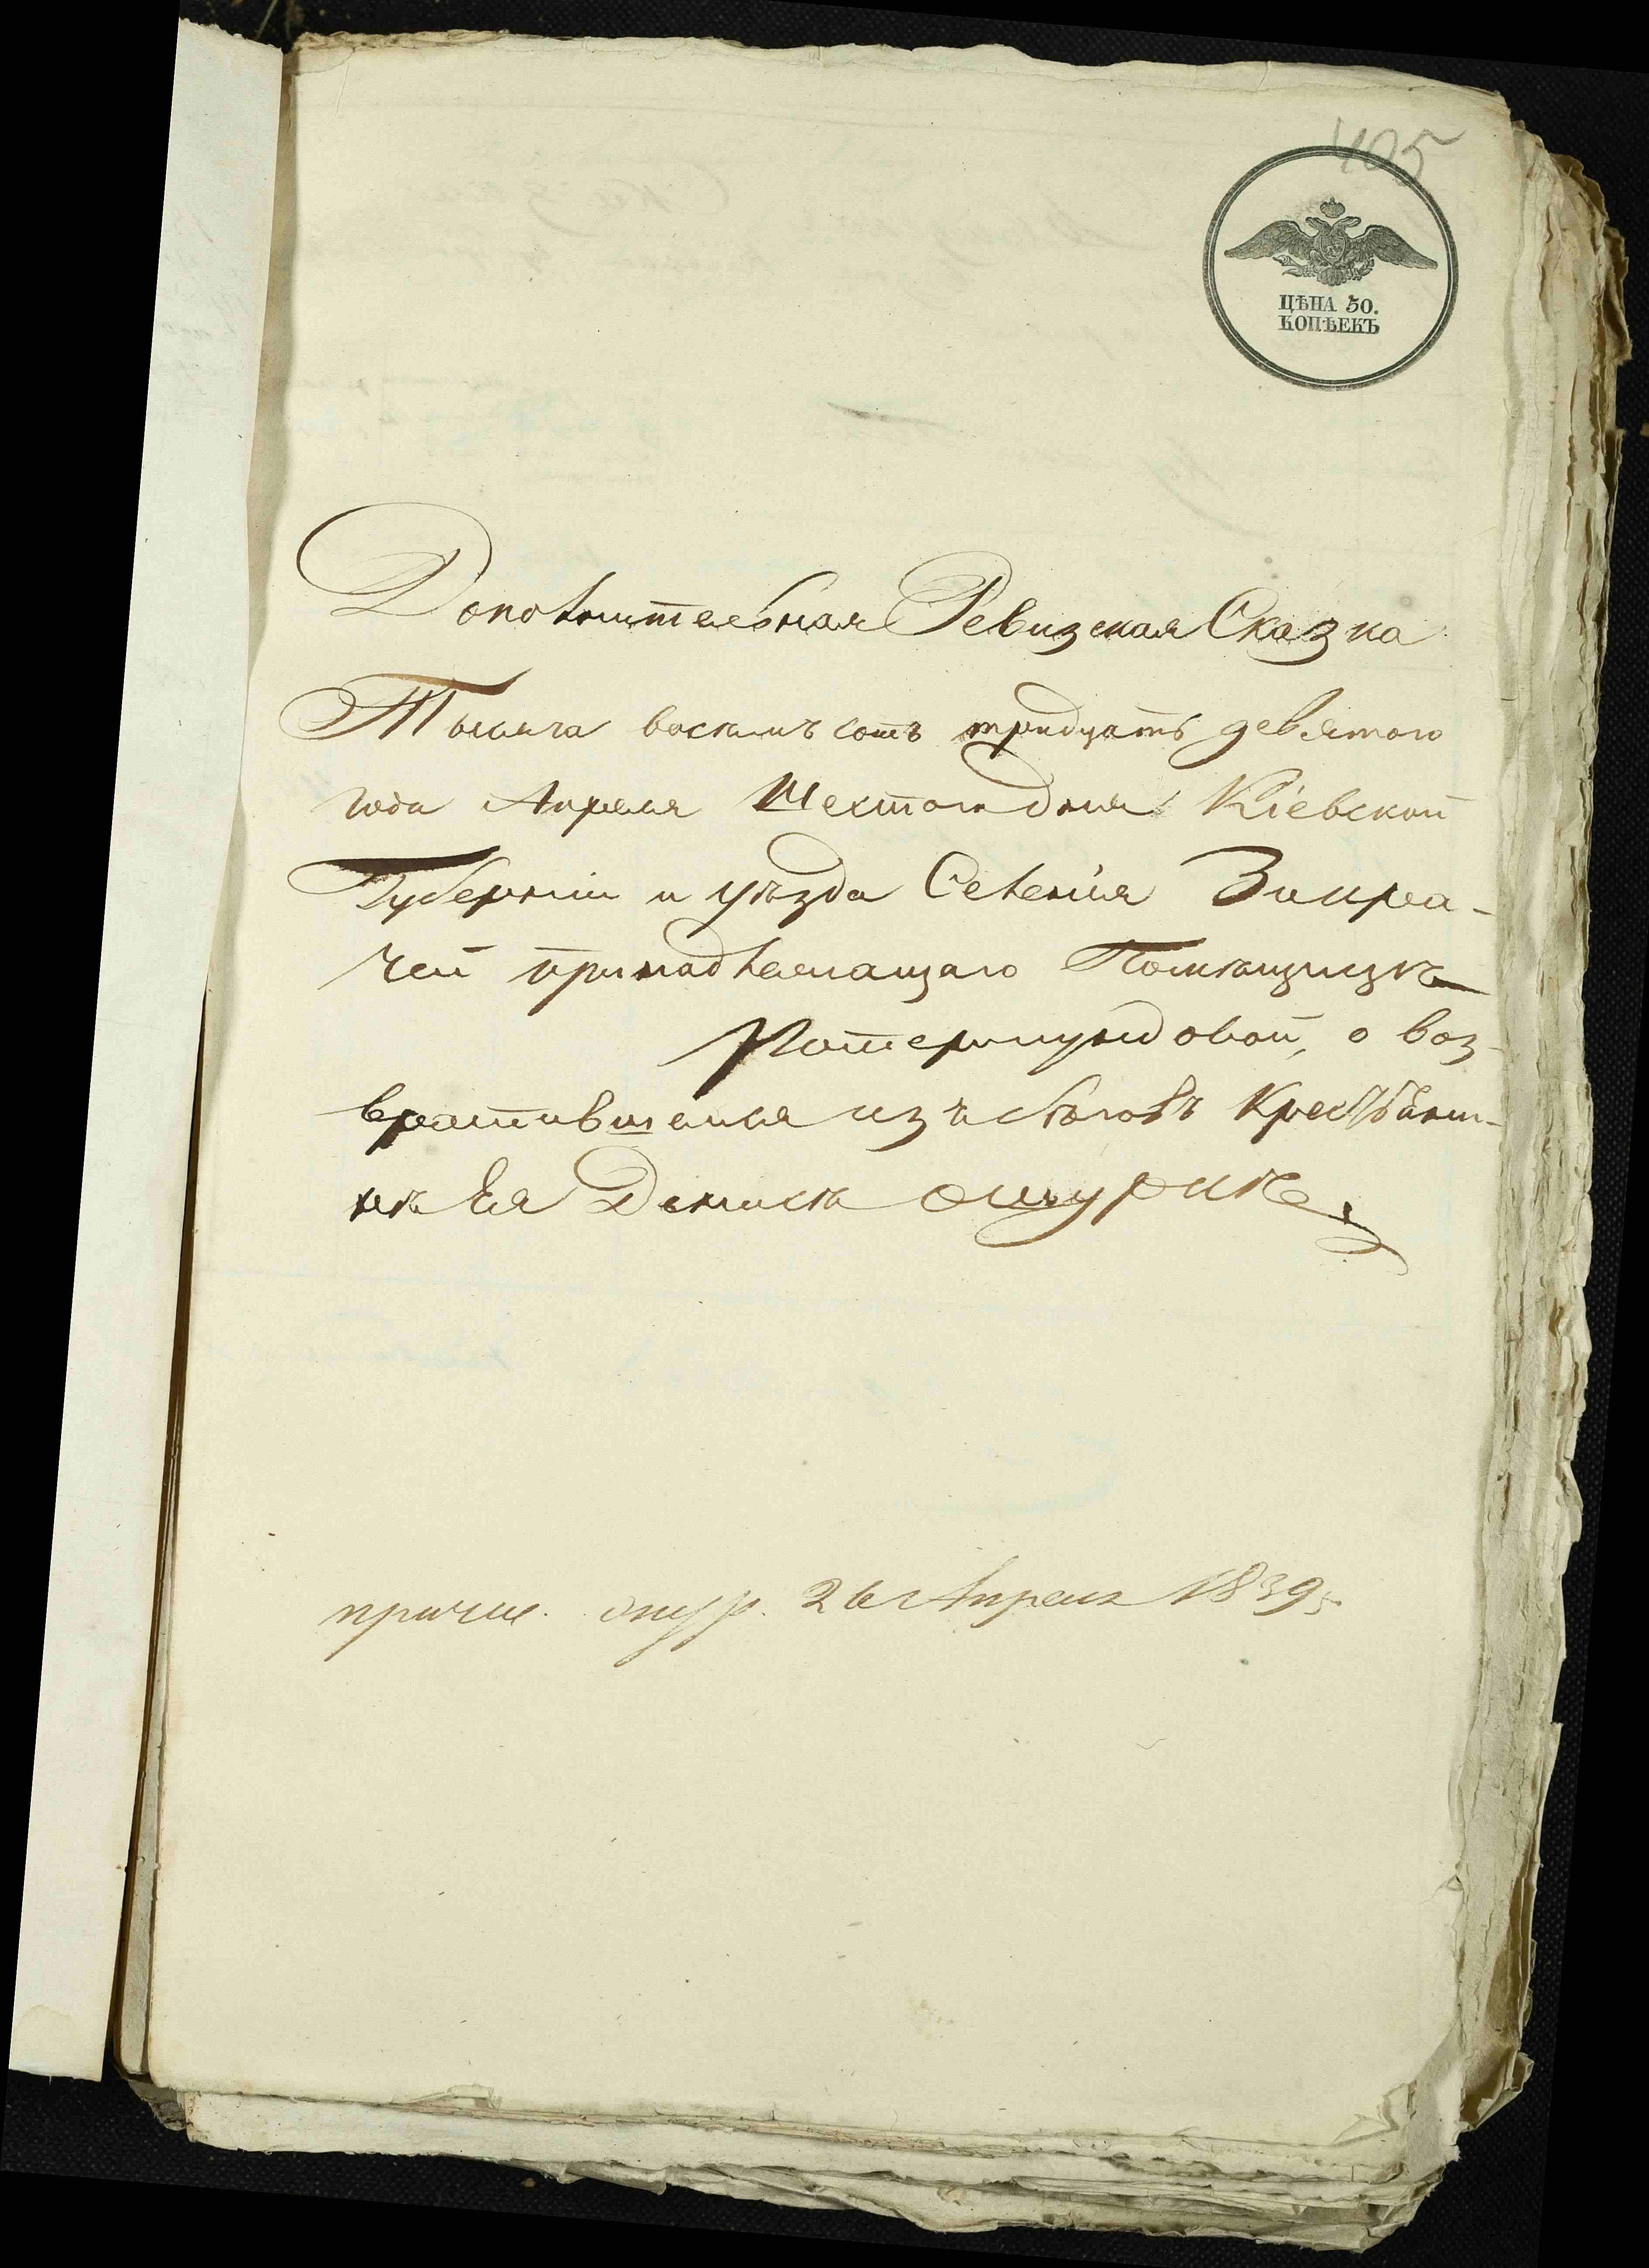 405
ЦѢНА 50.
КОПѢЕКЪ
Дополнительная Ревизская Сказка
Тысяча восемъ сотъ тридцать девятого
года Апреля Шестого дня Кіевской
Губерніи и уѣзда Селенія Зикра-
чей принадлежащаго Помѣщицѣ
о воз-
вратившемся изъ бѣговъ Крестьяни-
нѣ Ея Денисѣ
26 Апреля 1839